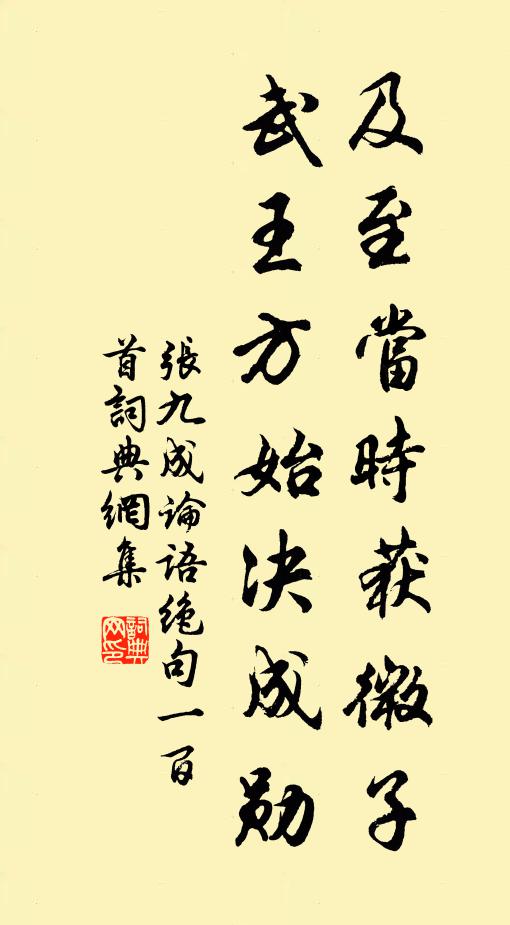 及至當時获微子
武王方始决成勋
張九成論語绝句一百
首詞典網集
詞典网印